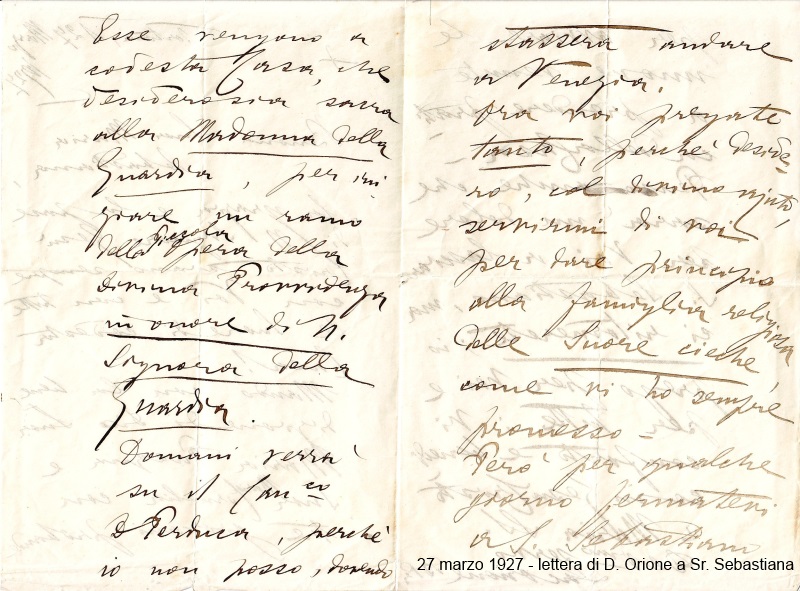 Esse vengono a
codesta Casa, che
desidero sia sacra
alla Madonna della
Guardia, per ini
ziare un ramo
della Piccola Opera della
divina Provvidenza
in onore di N.
Signora della
Guardia.
Domani verrà
su il Can.co
D Perduca, perché
io non posso, dovendo
stassera andare
a Venezia.
Ora voi pregate
tanto, perchè deside-
ro, col divino ajuto,
servirmi di voi
per dare principio
alla famiglia religiosa
delle Suore cieche
come vi ho sempre
promesso –
Però per qualche
giorno fermatevi
a S. Sebastiano
27 marzo 1927 - lettera di D. Orione a Sr. Sebastiana